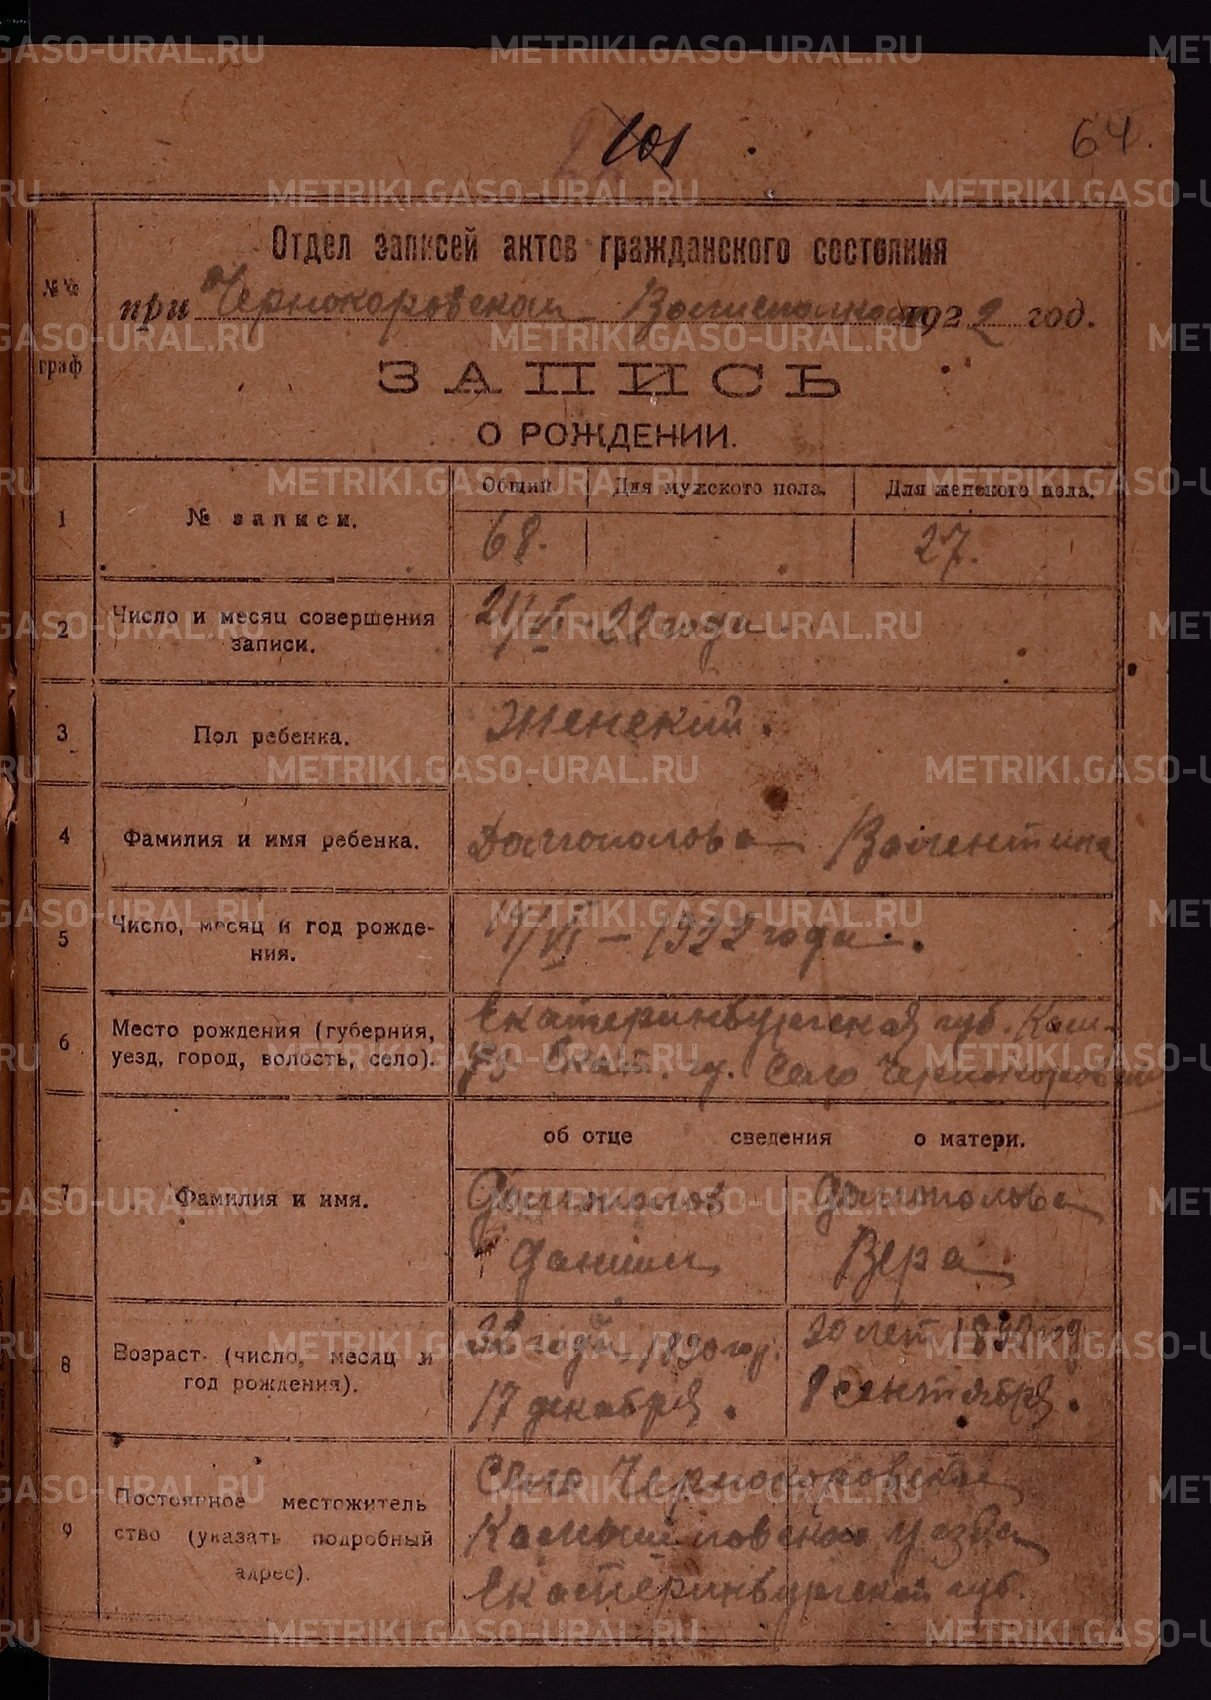 101
64.
Отдел записей актов гражданского состояния
№№ граф
при Чернокоровском Волисполкоме 1922 год.
ЗАПИСЬ
О РОЖДЕНИИ.
1 № записи. Общий Для мужского пола. Для женского пола.
68. 27.
2 Число и месяц совершения записи. 21/VI-22 года.
3 Пол ребенка. Женский.
4 Фамилия и имя ребенка. Долгополова Валентина
5 Число, месяц и год рождения. /VI – 1922 года.
6 Место рождения (губерния, уезд, город, волость, село). Екатеринбургская губ. Кам-
у. Село Чернокоровское
об отце сведения о матери.
7 Фамилия и имя. Долгополов Долгополова
Даниил Вера
8 Возраст (число, месяц и год рождения). года, 1890 г. 30 лет
17 декабря. 8 сентября.
9 Постоянное местожительство (указать подробный адрес). Село Чернокоровское
Камышловского уезда
Екатеринбургской губ.
METRIKI.GASO-URAL.RU